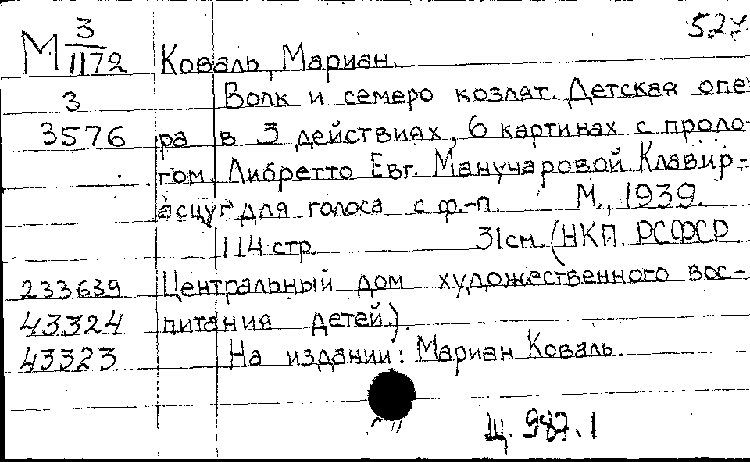 527
М 3/1172 Коваль, Мариан.
3 Волк и семеро козлят. Детская опе
3576 ра в 3 действиях, 6 картинах с проло-
гом. Либретто Евг. Манучаровой Клавир-
асцуг для голоса с ф.-п. М., 1939.
114 стр. 31см. (НКП РСФСР
233639 Центральный дом художественного вос-
43324 питания детей.).
43323 На издании: Мариан Коваль.
Щ. 987.1